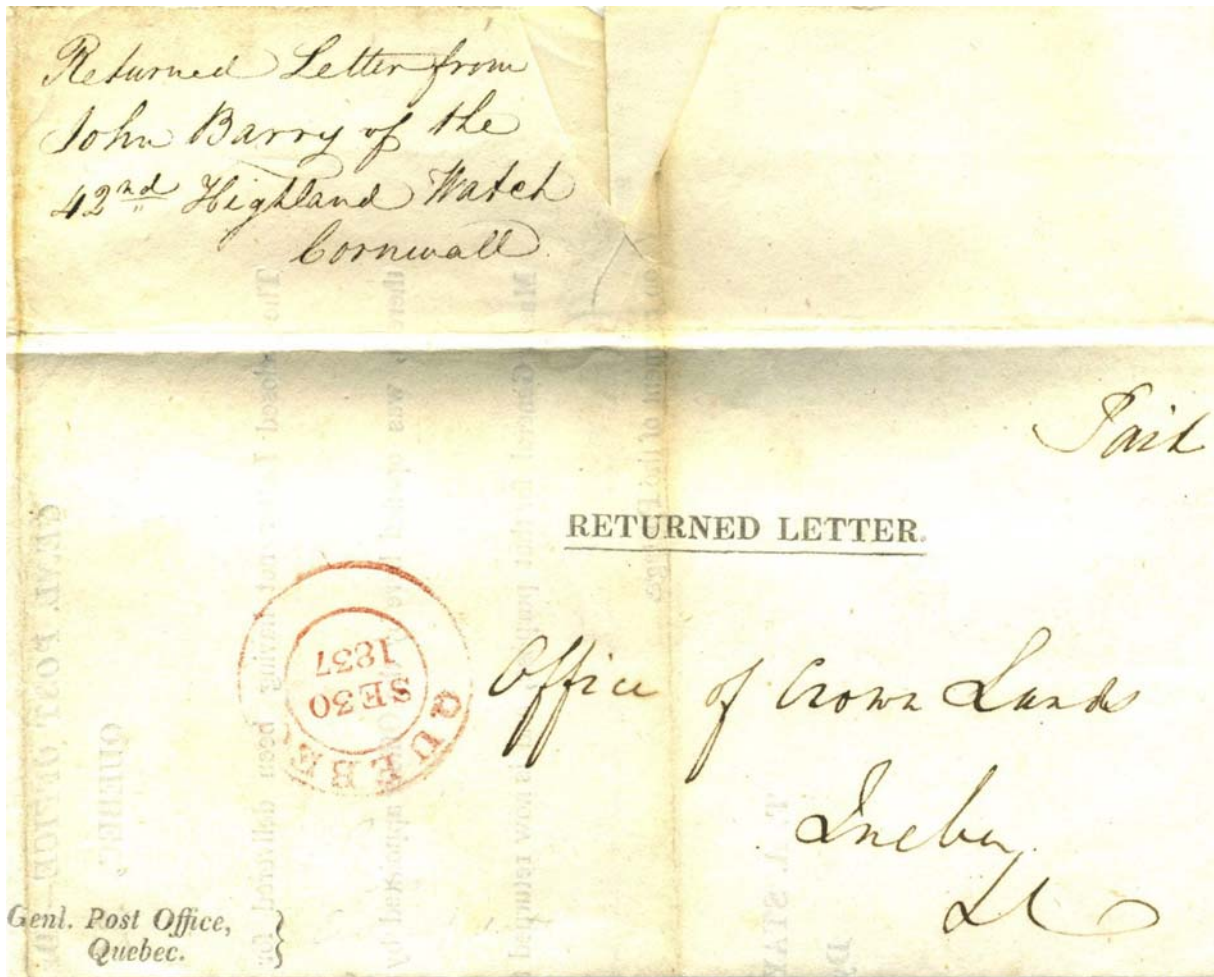 Returned Letter from
John Barry of the
42nd Highland Watch
Cornwall
Paid
RETURNED LETTER.
QUEBEC
SE 30
1837
Office of Crown Lands
Quebec
LC
Genl. Post Office,
Quebec.